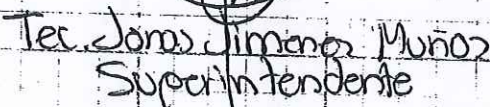 Tec. Jonas Jimenez Muñoz
Superintendente